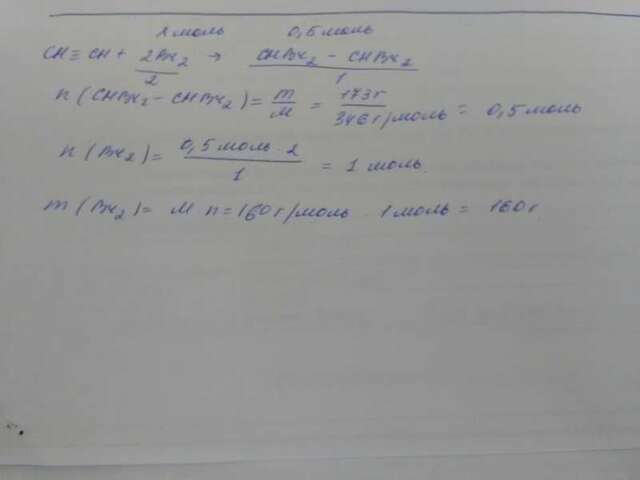 1 моль 0,5 моль
CH ≡ CH + 2Br2 → CHBr2 – CHBr2
2 1
n (CHBr2 – CHBr2) = m/M = 173г / 346 г/моль = 0,5 моль
n (Br2) = 0,5 моль · 2 / 1 = 1 моль.
m (Br2) = M n = 160 г/моль · 1 моль = 160 г